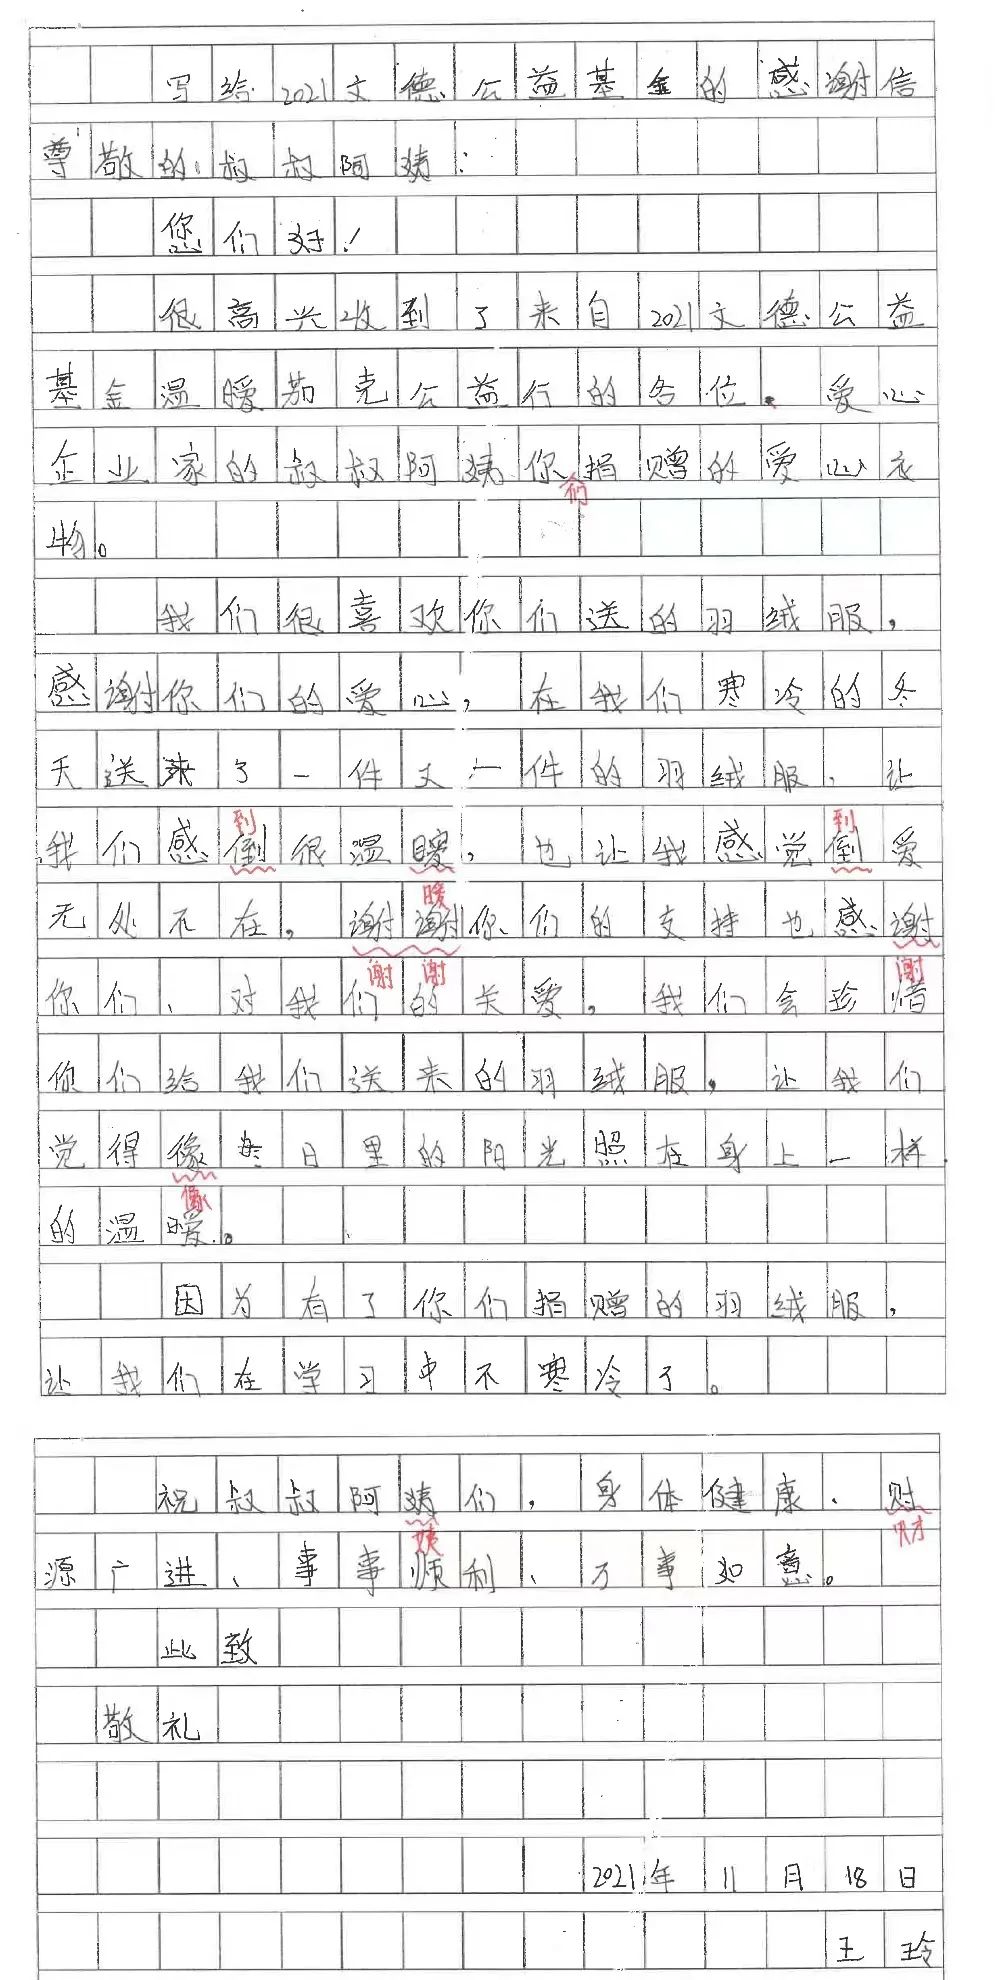 写给2021文德公益基金的感谢信
尊敬的叔叔阿姨:
您们好!
很高兴收到了来自2021文德公益
基金温暖茄克公益行的各位。爱心
企业家的叔叔阿姨你捐赠的爱心衣
们
物。
我们很喜欢你们送的羽绒服,
感谢你们的爱心,在我们寒冷的冬
天送来了一件又一件的羽绒服、让
到 到
我们感倒很温暖,也让我感觉倒爱
暖
无处不在。谢谢你们的支持也感谢
谢 谢 谢
你们、对我们的关爱。我们会珍惜
你们给我们送来的羽绒服,让我们
觉得像冬日里的阳光照在身上一样
像
的温暖。
因为有了你们捐赠的羽绒服,
让我们在学习中不寒冷了。
祝叔叔阿姨们,身体健康、财
姨 财
源广进、事事顺利、万事如意。
此致
敬礼
2021年11月18日
王玲